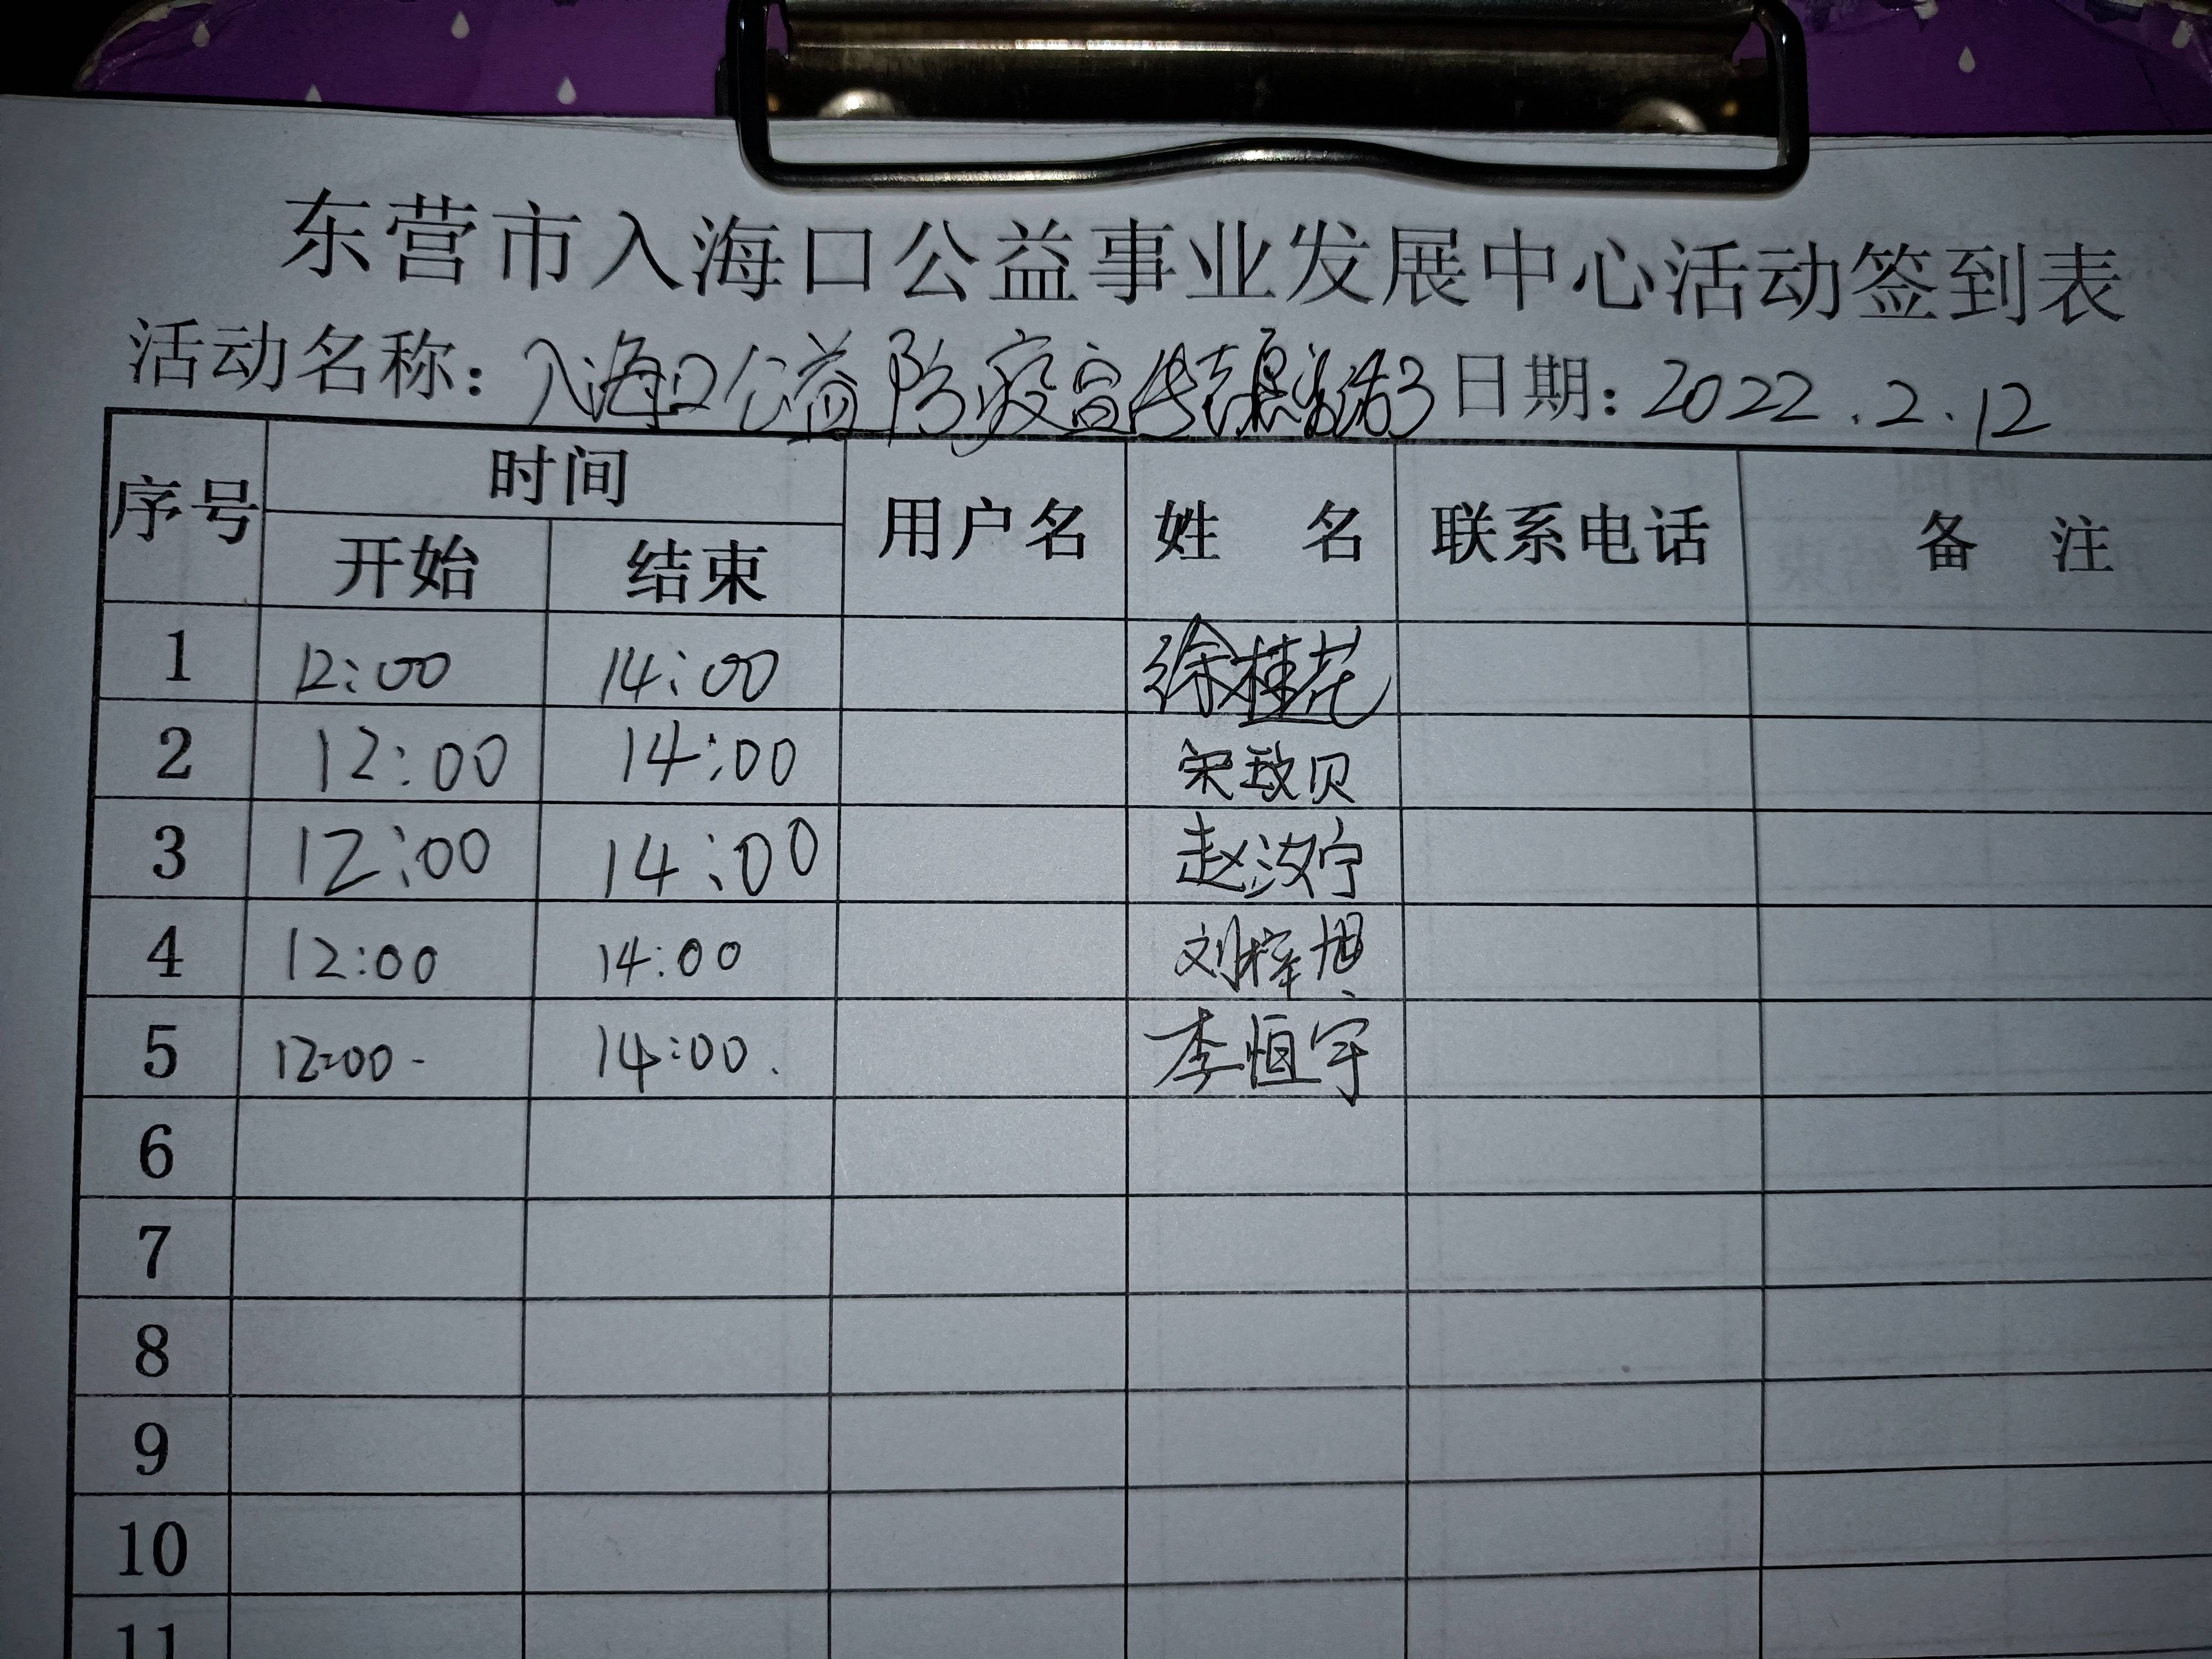 东营市入海口公益事业发展中心活动签到表
活动名称：入海口公益防疫宣传志愿 日期：2022.2.12
序号 时间 用户名 姓 名 联系电话 备 注
开始 结束
1 12:00 14:00 徐桂花
2 12:00 14:00 宋政贝
3 12:00 14:00 赵汝宁
4 12:00 14:00 刘梓旭
5 12:00 14:00. 李恒宇
6
7
8
9
10
11